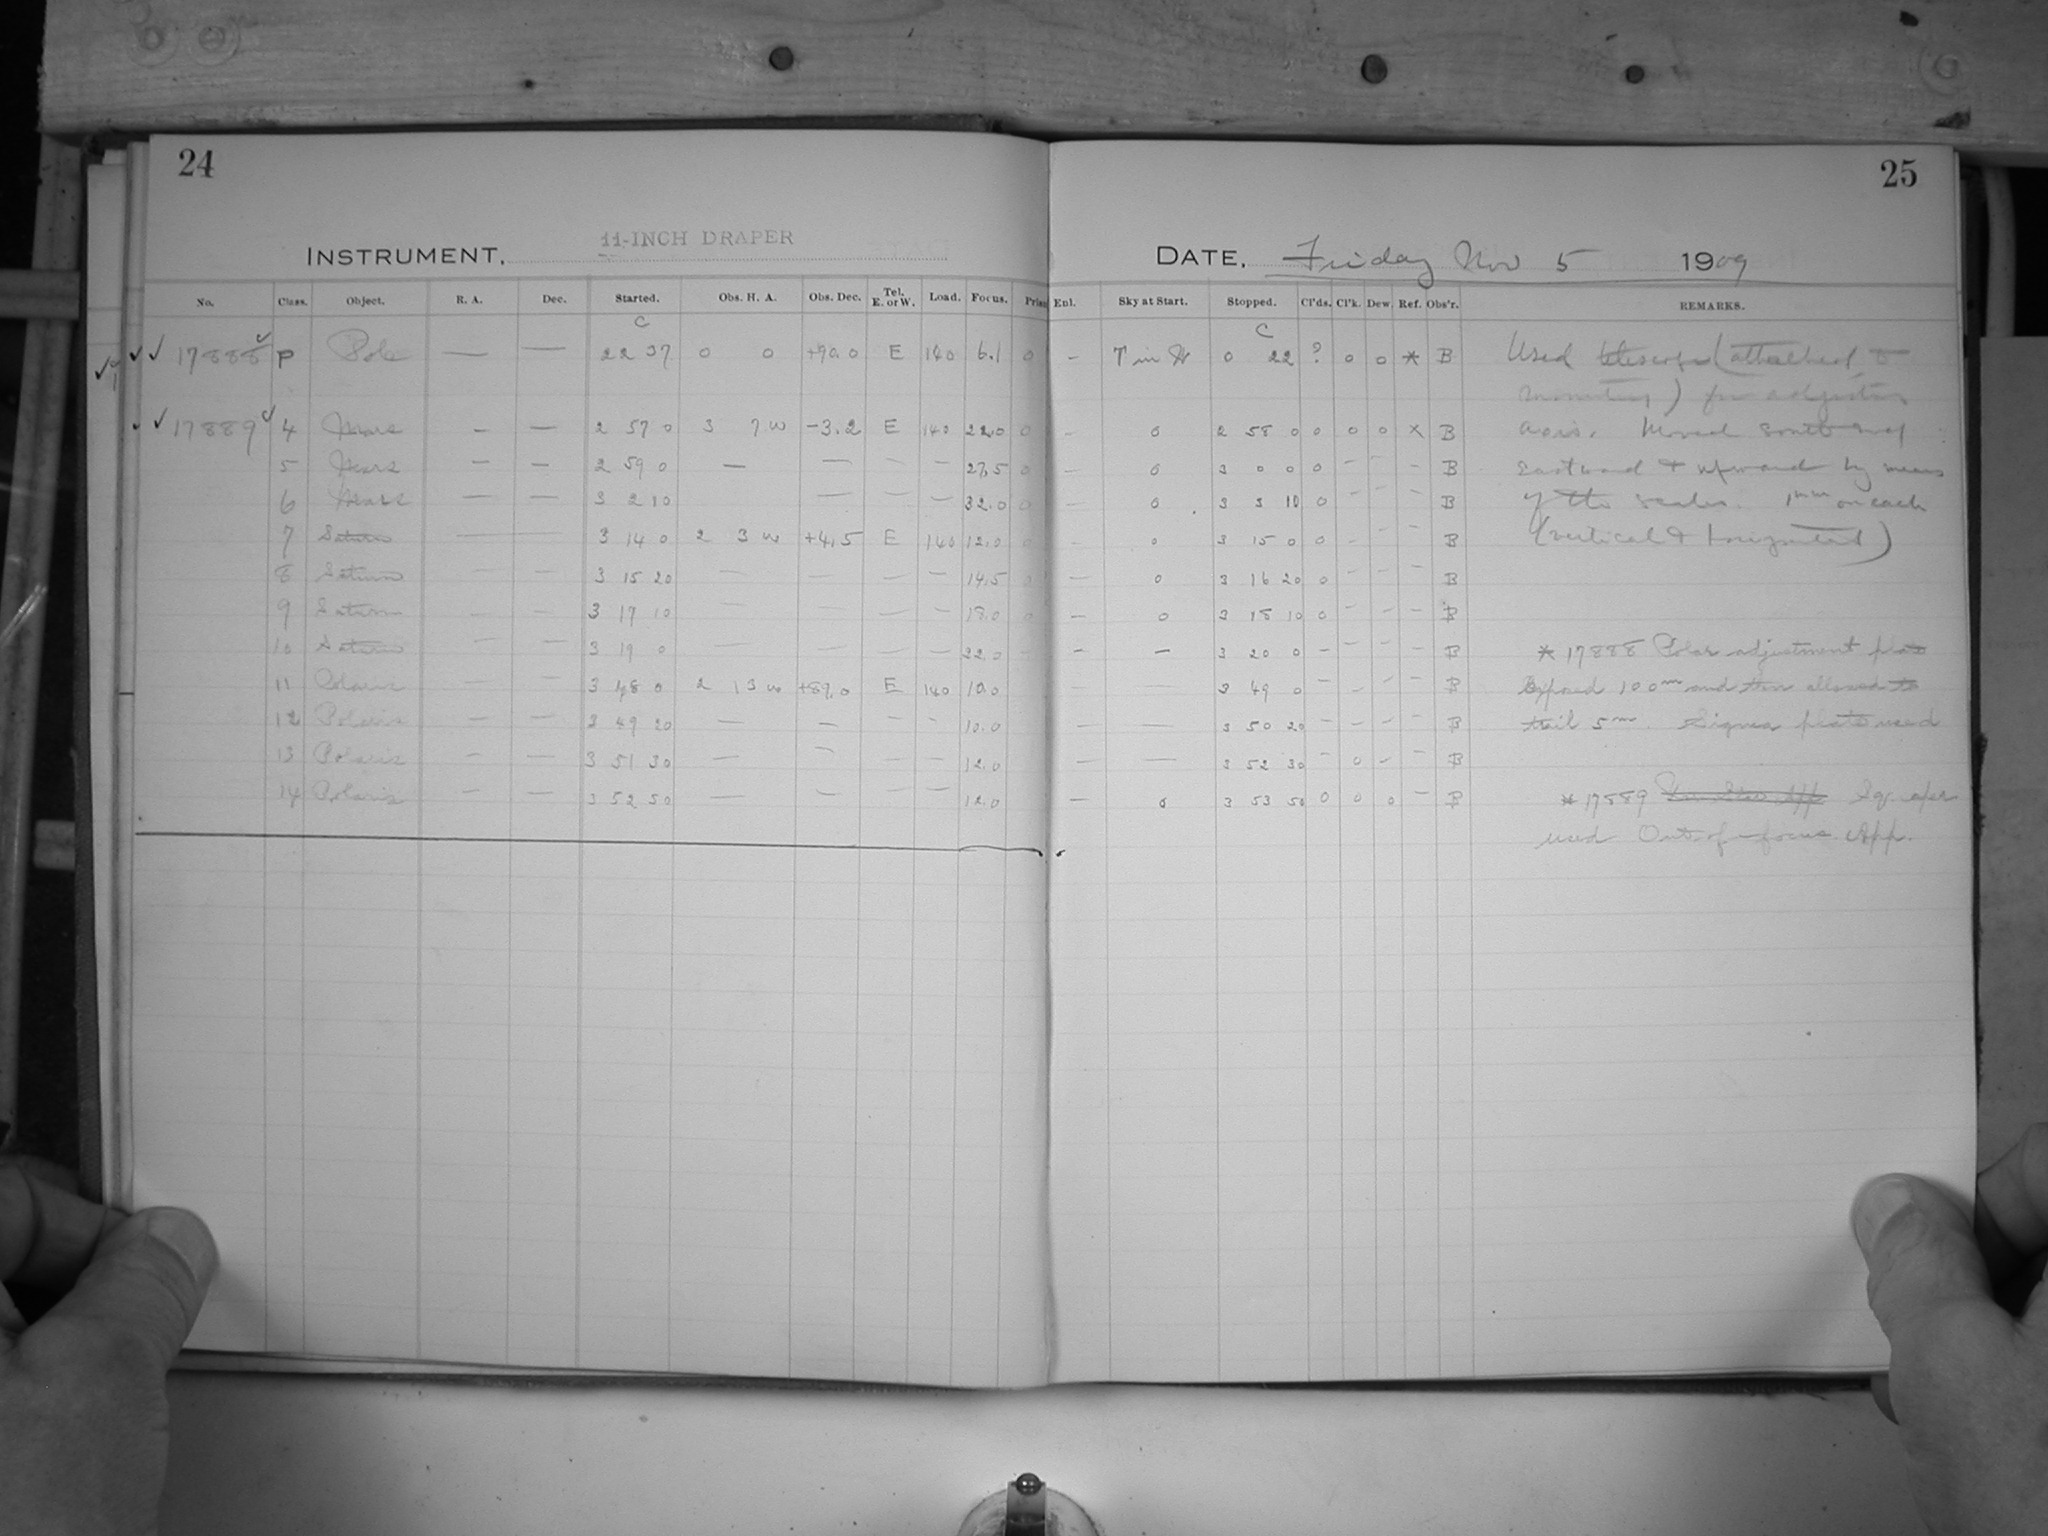 24
INSTRUMENT, 11-INCH DRAPER
No. Class. Object. R. A. Dec. Started. Obs. H. A. Obs. Dec. Tel. E. or W. Load. Focus.
C
17888 P Pole — — 22 37 0 0 +90.0 E 140 6.1 0
17889 4 Mars — — 2 57 0 3 7 W −3.2 E 140 22.0 0
5 Mars — — 2 59 0 — — — — 27.5 0
6 Mars — — 3 2 10 — — — 32.0 0
7 Saturn — — 3 14 0 2 3 W +4.5 E 140 12.0 0
8 Saturn — — 3 15 20 — — — — 14.5 0
9 Saturn — — 3 17 10 — — — — 18.0 0
10 Saturn — — 3 19 0 — — — — 22.0 —
11 Polaris — — 3 48 0 2 13 W +89.0 E 140 10.0
12 Polaris — — 3 49 20 — — — — 10.0
13 Polaris — — 3 51 30 — — — — 12.0
14 Polaris — — 3 52 50 — — — — 12.0
25
DATE, Friday Nov 5 1909
Enl. Sky at Start. Stopped. Cl'ds. Cl'k. Dew. Ref. Obs'r. REMARKS.
C
— T in H 0 22 ? 0 0 * B Used telescope (attached to
mounting) for adjusting
— 0 2 58 0 0 0 0 * B axis. Moved south end
— 0 3 0 0 0 — — — B eastward & upward by means
— 0 3 3 10 0 — — — B of the scales. 1mm on each
— 0 3 15 0 0 — — — B (vertical & horizontal)
— 0 3 16 20 0 — — — B
— 0 3 18 10 0 — — — B
— — 3 20 0 — — — — B * 17888 Polar adjustment plate
3 49 0 — — — — B Exposed 100m and then allowed to
— — 3 50 20 — — — — B trail 5m. Sigma plate used
— — 3 52 30 — 0 — — B
— 0 3 53 50 0 0 0 — B * 17889 Sq. aper
used Out-of-focus App.